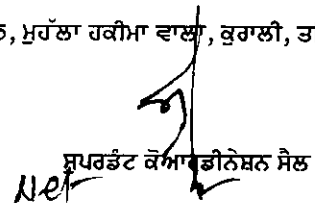 ਮੁਹੱਲਾ ਹਕੀਮਾ ਵਾਲਾ, ਕੁਰਾਲੀ,
ਸੁਪਰਡੰਟ ਕੋਆਰਡੀਨੇਸ਼ਨ ਸੈਲ